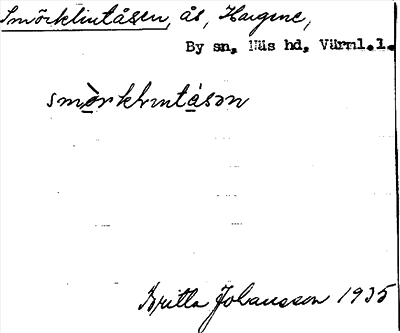 Smörklintåsen, ås, Hargene,
By sn, Näs hd, Värml.l.
smö̀rklintåsən
Britta Johansson 1935